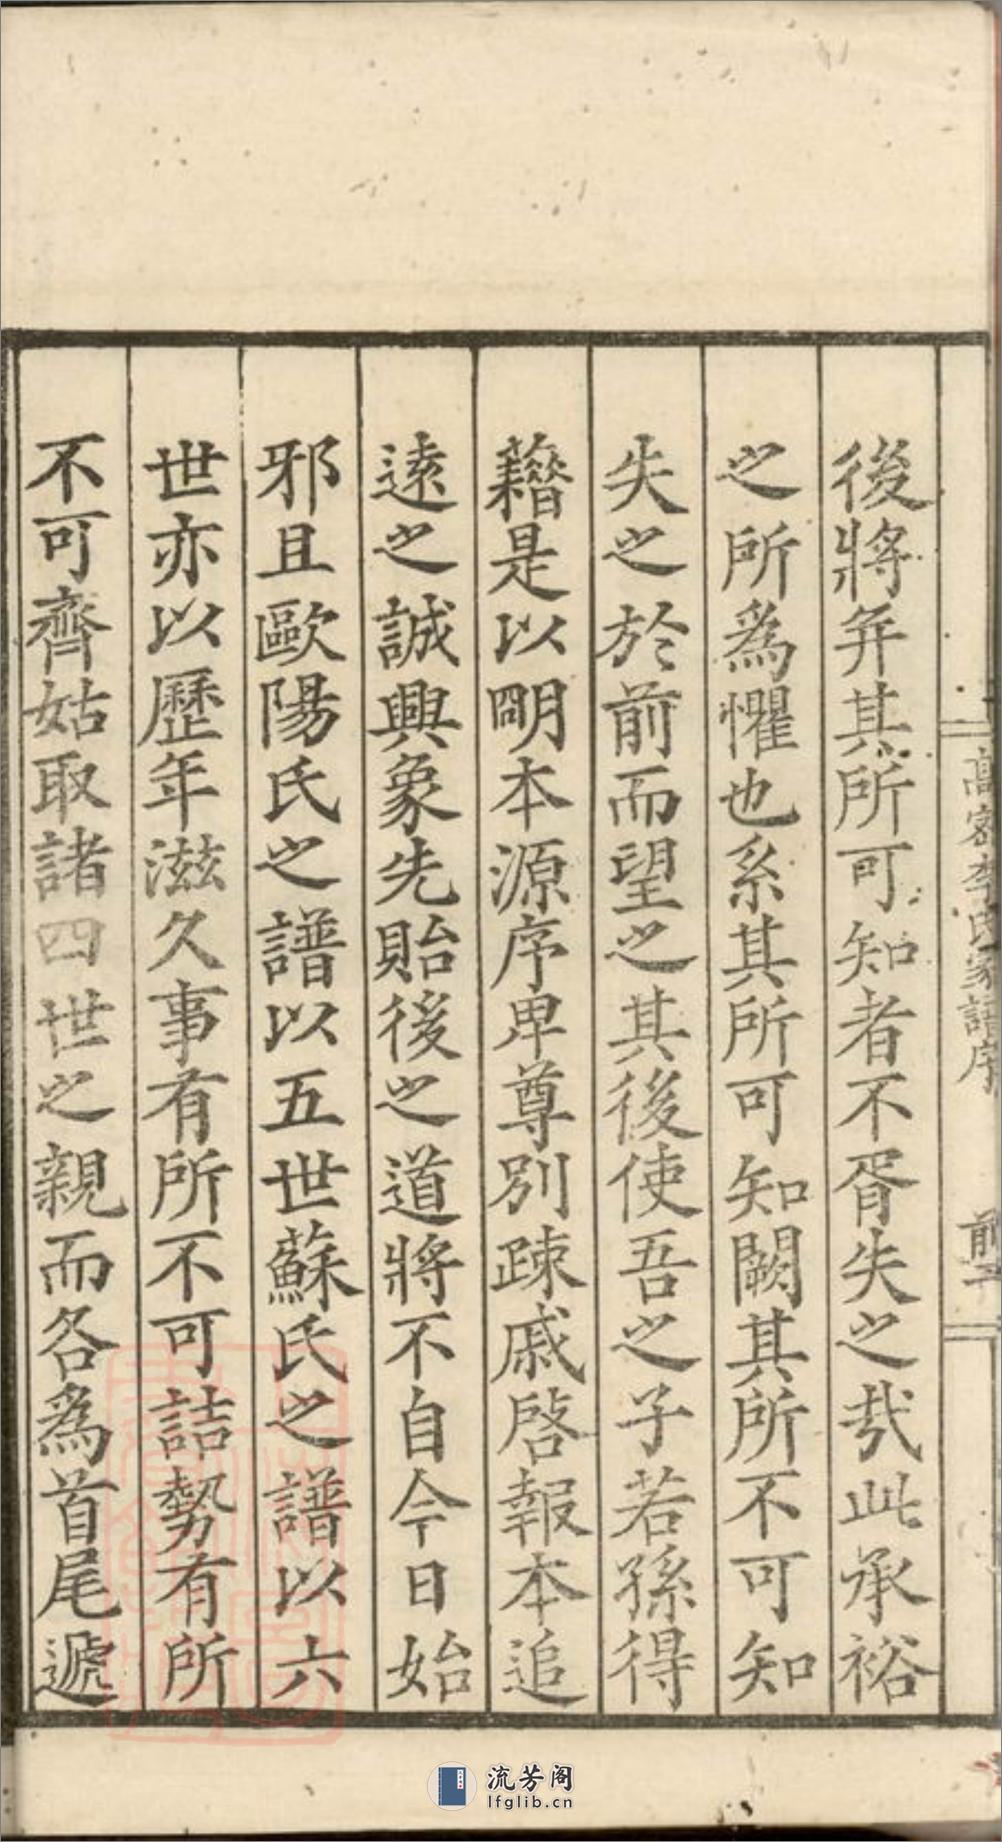 高密李氏家譜序
前二
後將并其所可知者不胥失之哉此承裕
之所為懼也系其所可知闕其所不可知
失之於前而望之其後使吾之子若孫得
藉是以明本源序卑尊別疎戚啓報本追
遠之誠興象先貽後之道將不自今日始
邪且歐陽氏之譜以五世蘇氏之譜以六
世亦以歷年滋久事有所不可詰勢有所
不可齊姑取諸四世之親而各為首尾遞
流芳阁
lfglib.cn